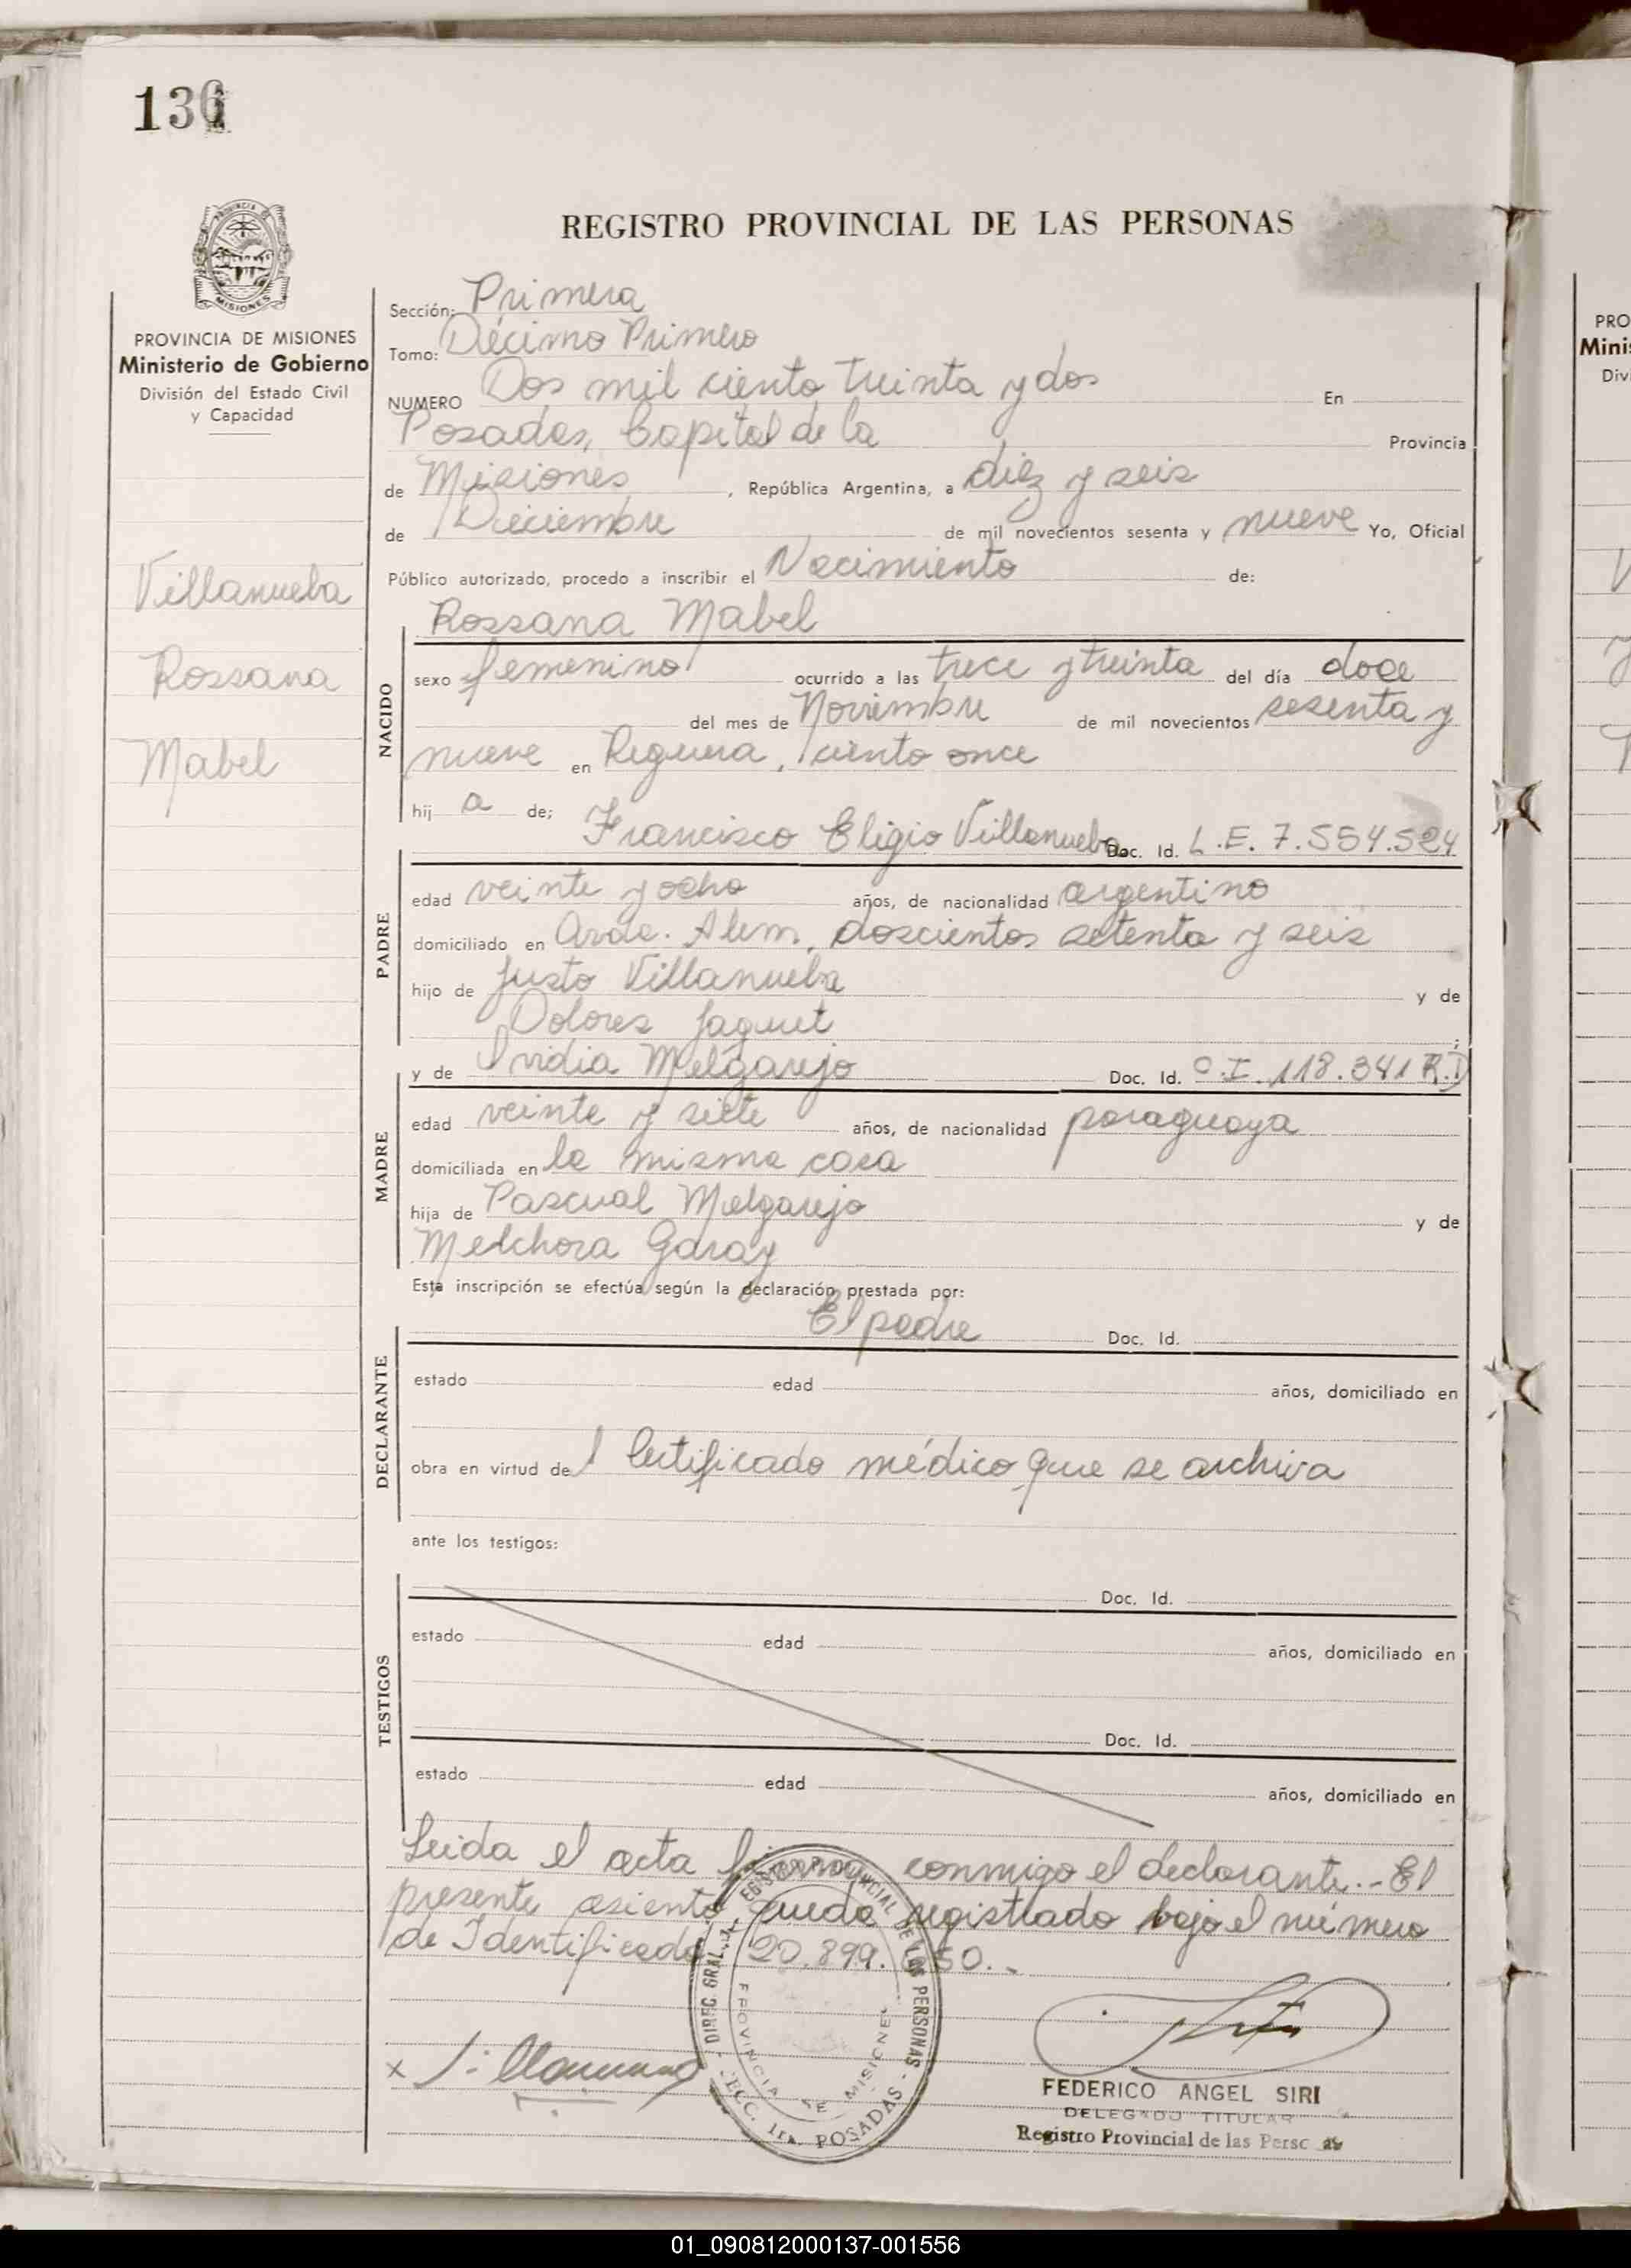 REGISTRO PROVINCIAL DE LAS PERSONAS
MISIONES
PROVINCIA DE MISIONES
Ministerio de Gobierno
División del Estado Civil
y Capacidad
Villanueba
Rossana
Mabel
Sección: Primera
Tomo: Décimo Primero
NUMERO Dos mil ciento treinta y dos En
Posadas, Capital de la Provincia
de Misiones, República Argentina, a diez y seis
de Diciembre de mil novecientos sesenta y nueve Yo, Oficial
Público autorizado, procedo a inscribir el Nacimiento de:
Rossana Mabel
NACIDO
sexo femenino ocurrido a las trece y treinta del día doce
del mes de Noviembre de mil novecientos sesenta y
nueve en Reguera, ciento once
hij a de; Francisco Eligio Villanueba Doc. Id. L.E. 7.554.524
PADRE
edad veinte y ocho años, de nacionalidad argentino
domiciliado en Avda. Alem, doscientos setenta y seis
hijo de Justo Villanueba y de
Dolores Jaquet;
y de Ividia Melgarejo Doc. Id. C.I. 118.341 R.P
MADRE
edad veinte y siete años, de nacionalidad paraguaya
domiciliada en la misma casa
hija de Pascual Melgarejo y de
Melchora Garay
Esta inscripción se efectúa según la declaración prestada por:
El padre Doc. Id.
DECLARANTE
estado edad años, domiciliado en
obra en virtud del Certificado médico que se archiva
ante los testigos:
TESTIGOS
Doc. Id.
estado edad años, domiciliado en
Doc. Id.
estado edad años, domiciliado en
Leida el acta firma conmigo el declarante.- El
presente asiento queda registrado bajo el número
de Identificado 20.899.650.-
DIREC. GRAL. REGISTRO PROVINCIAL DE LAS PERSONAS - SECC. 1ra. POSADAS -
PROVINCIA DE MISIONES
x
FEDERICO ANGEL SIRI
DELEGADO TITULAR
Registro Provincial de las Persc as
01_090812000137-001556